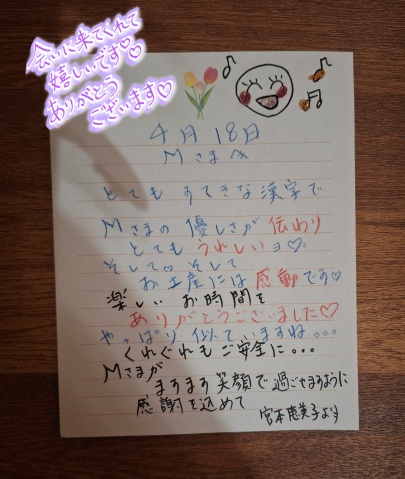 会いに来てくれて
嬉しいです♡♡
ありがとう
ございます♡
4月18日
Mさまへ
とても すてきな漢字で
Mさまの優しさが伝わり
とても うれしいヨ♡
そして♡ そして
お土産には感動です♡
楽しい お時間を
ありがとうございました♡
やっぱり 似ていますね...
くれぐれも ご安全に...
Mさまが
ますます 笑顔で 過ごせますように
感謝を込めて
宮本恵美子より